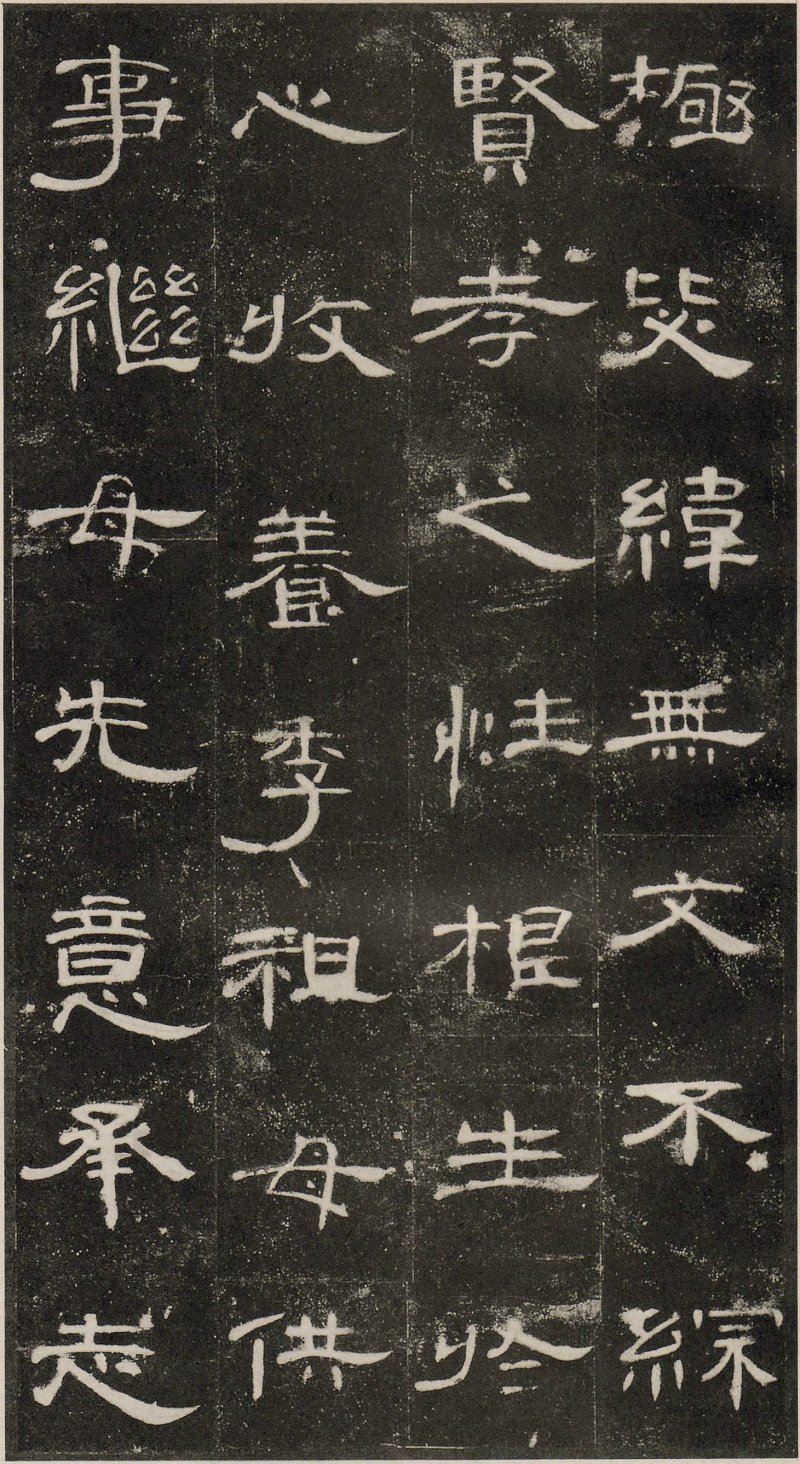 極毖緯無文不綜
賢孝之性根生於
心收養季祖母供
事繼母先意承志